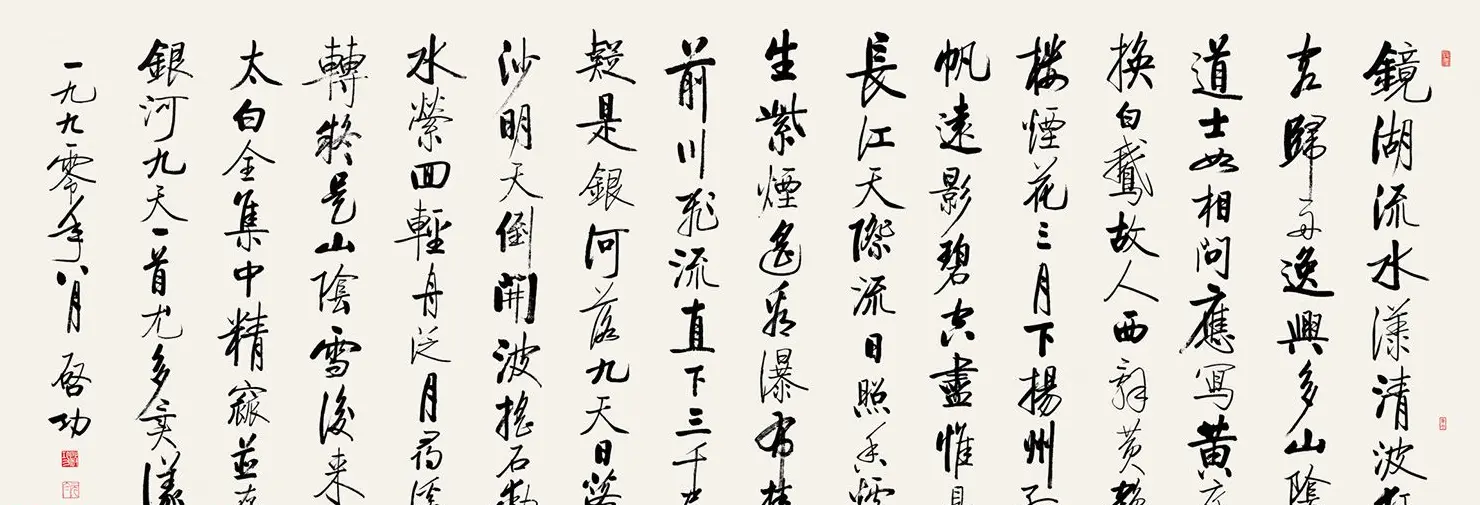 鏡湖流水漾清波狂
客歸舟逸興多山陰
道士如相問應寫黃庭
換白鵝故人西辭黃鶴
樓煙花三月下揚州孤
帆遠影碧空盡惟見
長江天際流日照香爐
生紫煙遙看瀑布挂
前川飛流直下三千尺
疑是銀河落九天日落
沙明天倒開波搖石動
水縈回輕舟泛月尋溪
轉疑是山陰雪後来
太白全集中精並
銀河九天一首尤多
一九九零年八月 啓功